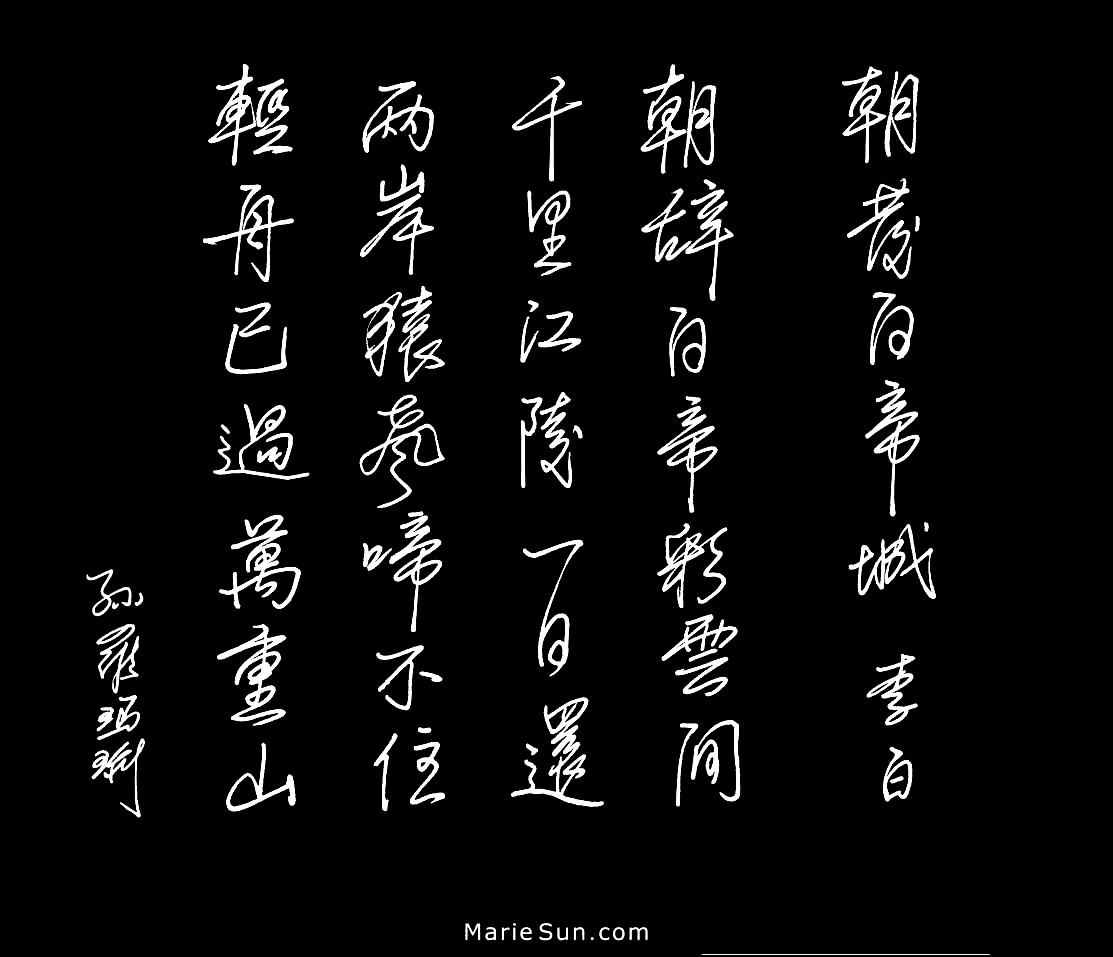 朝發白帝城 李白
朝辭白帝彩雲間
千里江陵一日還
兩岸猿聲啼不住
輕舟已過萬重山
孫羅瑪琍
MarieSun.com